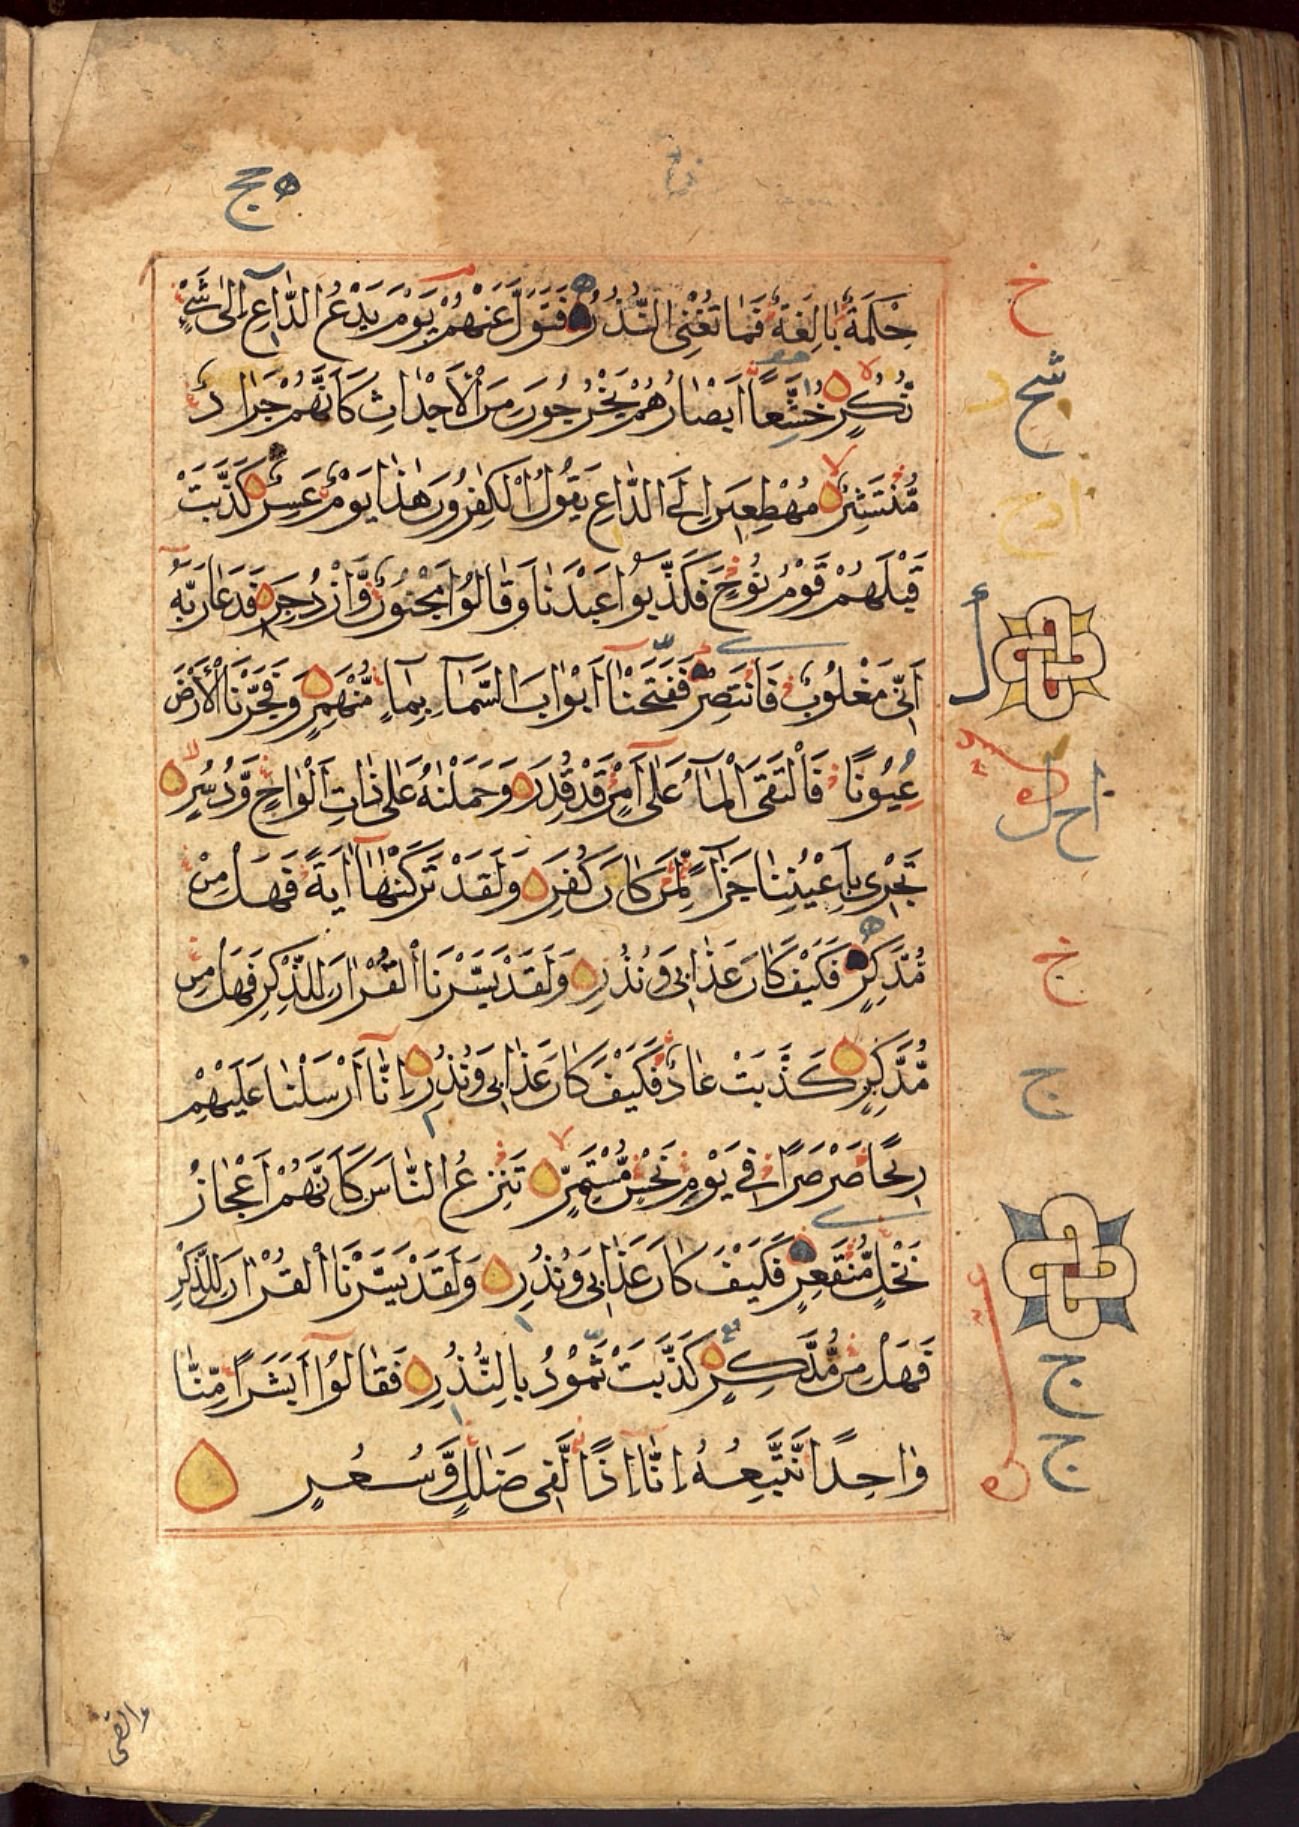 حِكْمَةٌ بَالِغَةٌ فَمَا تُغْنِي النُّذُرُ فَتَوَلَّ عَنْهُمْ يَوْمَ يَدْعُ الدَّاعِ إِلَىٰ شَيْءٍ
نُّكُرٍ خُشَّعًا أَبْصَارُهُمْ يَخْرُجُونَ مِنَ الْأَجْدَاثِ كَأَنَّهُمْ جَرَادٌ
مُّنْتَشِرٌ مُهْطِعِينَ إِلَى الدَّاعِ يَقُولُ الْكٰفِرُونَ هٰذَا يَوْمٌ عَسِرٌ كَذَّبَتْ
قَبْلَهُمْ قَوْمُ نُوحٍ فَكَذَّبُوا عَبْدَنَا وَقَالُوا مَجْنُونٌ وَّازْدُجِرَ فَدَعَا رَبَّهُ
أَنِّي مَغْلُوبٌ فَانْتَصِرْ فَفَتَحْنَا أَبْوَابَ السَّمَاءِ بِمَاءٍ مُّنْهَمِرٍ وَفَجَّرْنَا الْأَرْضَ
عُيُونًا فَالْتَقَى الْمَاءُ عَلَىٰ أَمْرٍ قَدْ قُدِرَ وَحَمَلْنٰهُ عَلَىٰ ذَاتِ أَلْوَاحٍ وَّدُسُرٍ
تَجْرِي بِأَعْيُنِنَا جَزَاءً لِّمَنْ كَانَ كُفِرَ وَلَقَدْ تَرَكْنٰهَا اٰيَةً فَهَلْ مِنْ
مُّدَّكِرٍ فَكَيْفَ كَانَ عَذَابِي وَنُذُرِ وَلَقَدْ يَسَّرْنَا الْقُرْاٰنَ لِلذِّكْرِ فَهَلْ مِنْ
مُّدَّكِرٍ كَذَّبَتْ عَادٌ فَكَيْفَ كَانَ عَذَابِي وَنُذُرِ إِنَّا أَرْسَلْنَا عَلَيْهِمْ
رِيحًا صَرْصَرًا فِي يَوْمِ نَحْسٍ مُّسْتَمِرٍّ تَنْزِعُ النَّاسَ كَأَنَّهُمْ أَعْجَازُ
نَخْلٍ مُّنْقَعِرٍ فَكَيْفَ كَانَ عَذَابِي وَنُذُرِ وَلَقَدْ يَسَّرْنَا الْقُرْاٰنَ لِلذِّكْرِ
فَهَلْ مِنْ مُّدَّكِرٍ كَذَّبَتْ ثَمُودُ بِالنُّذُرِ فَقَالُوا أَبَشَرًا مِّنَّا
وَاحِدًا نَّتَّبِعُهُ إِنَّا إِذًا لَّفِي ضَلٰلٍ وَّسُعُرٍ
خ
ج
ج
ج